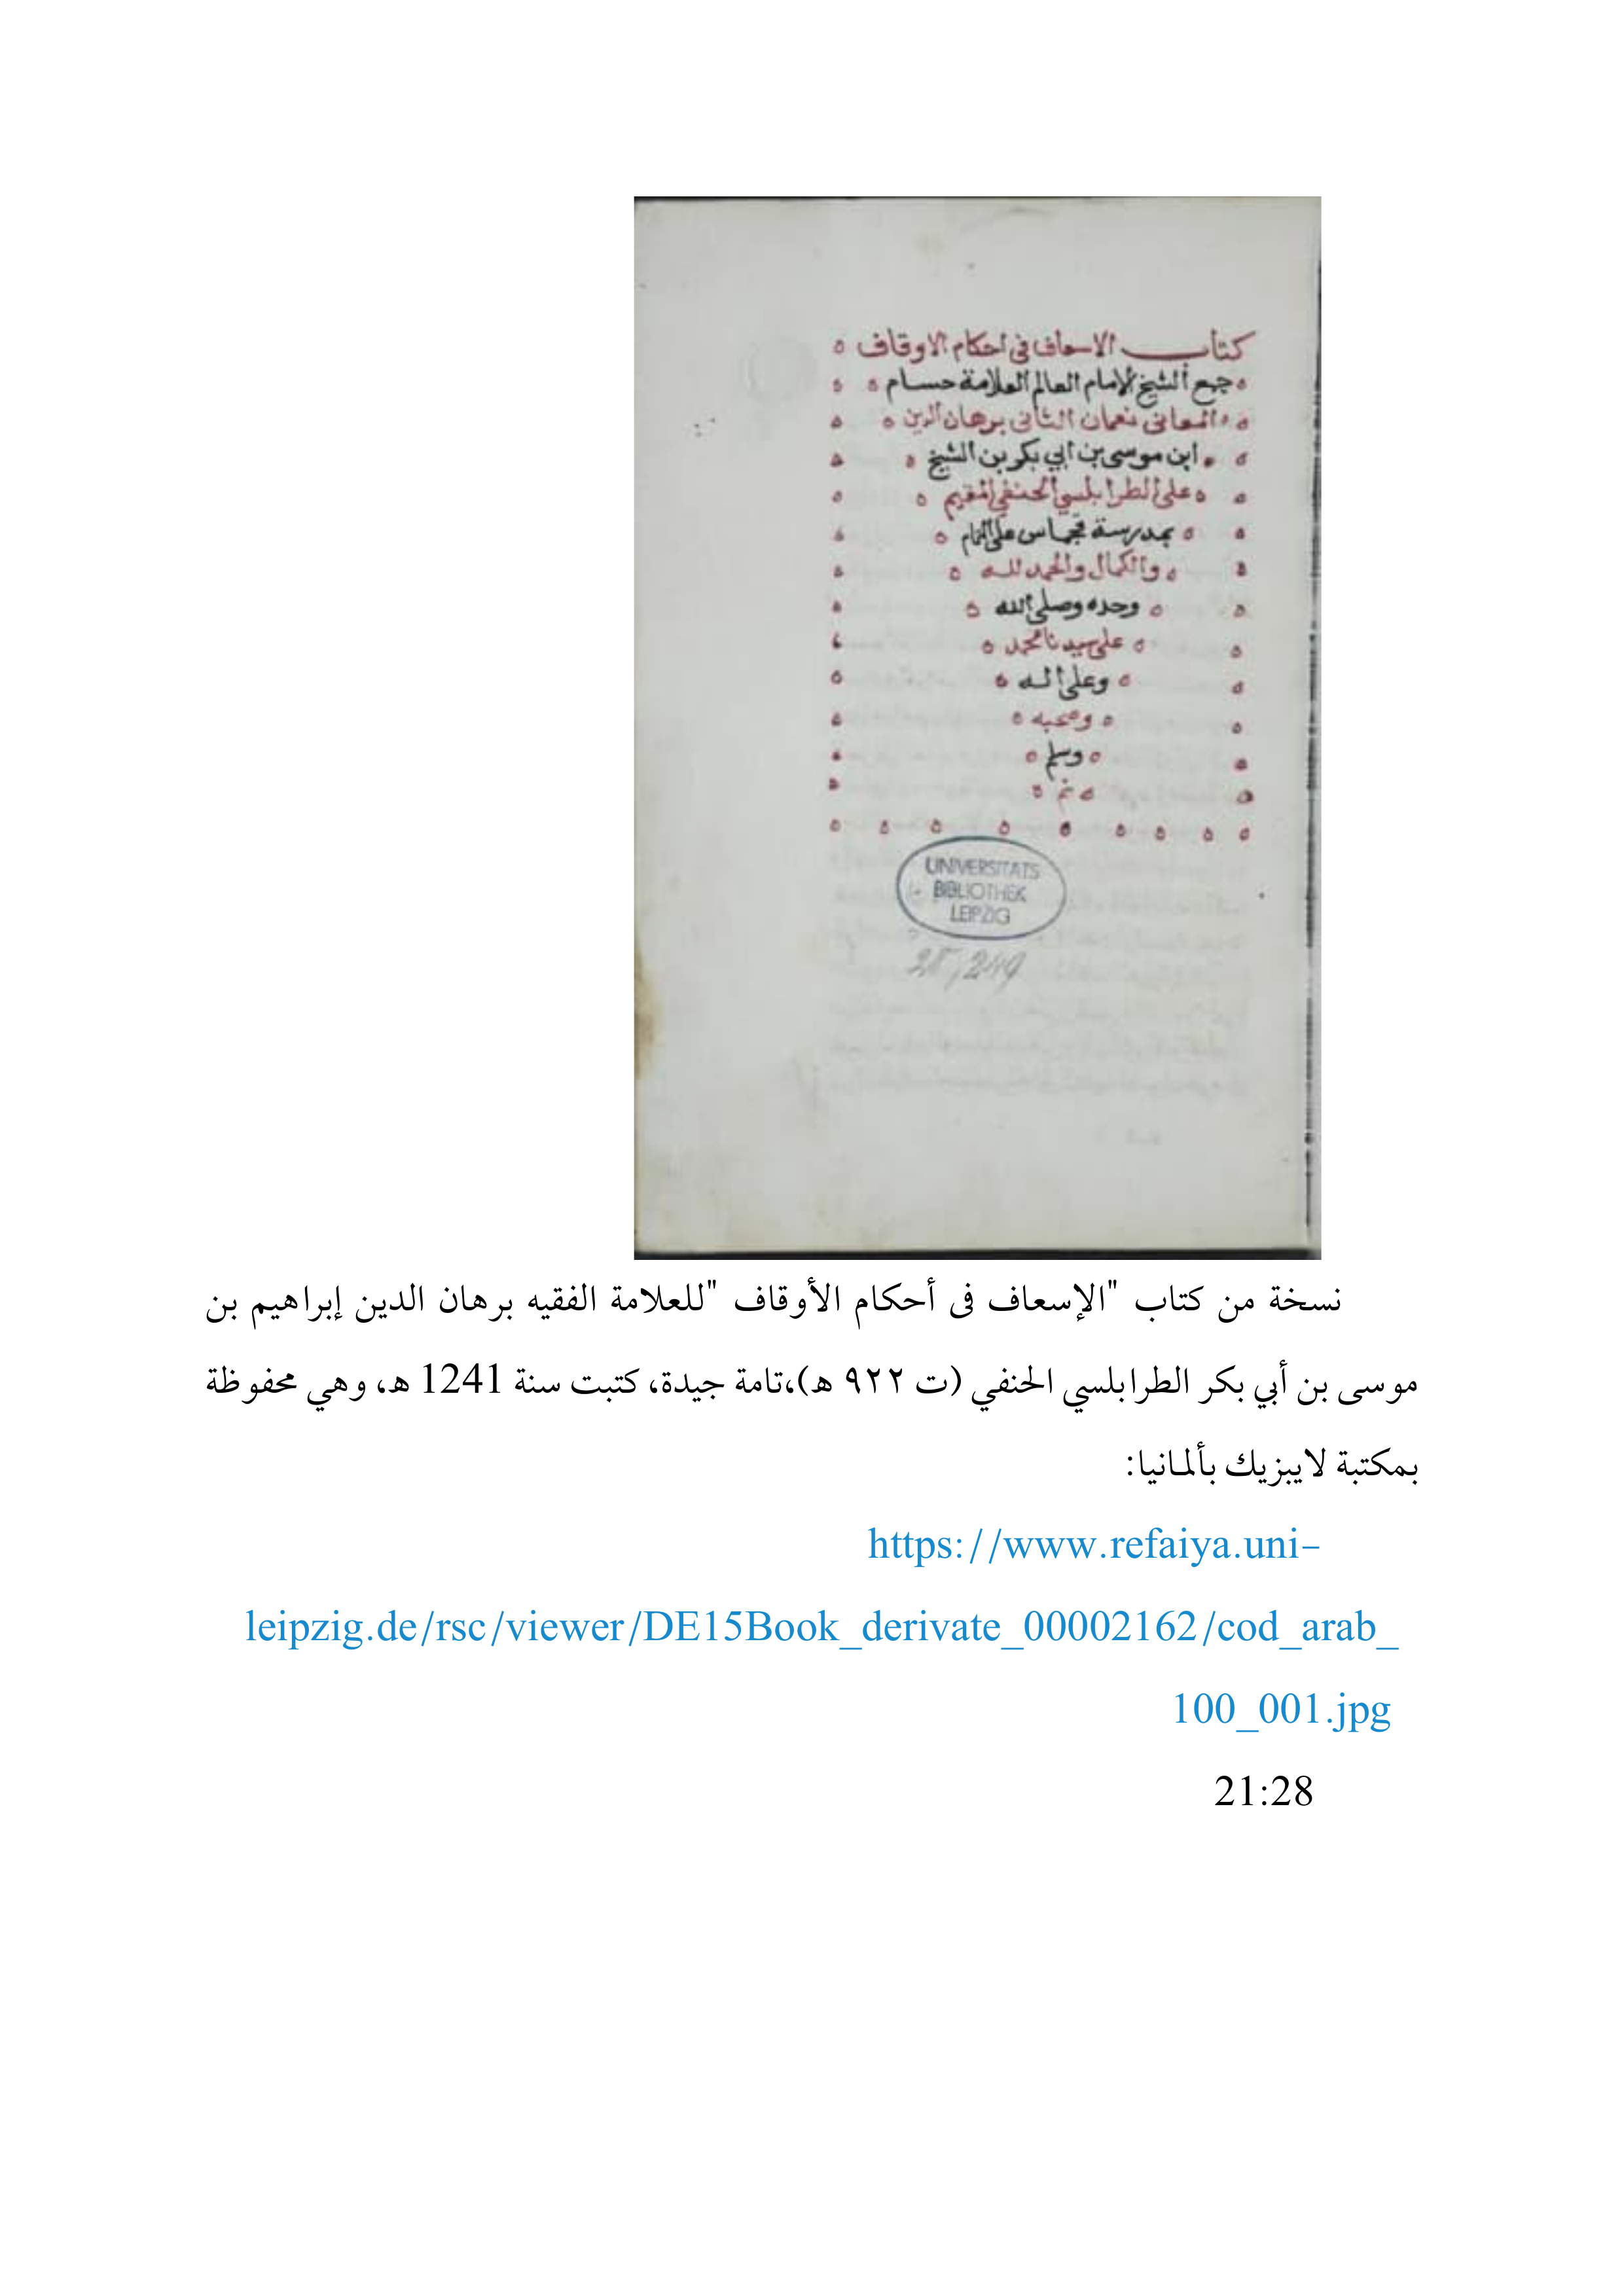 كتاب الاسعاف في احكام الاوقاف
جمع الشيخ الامام العالم العلامة حسام
المعاني نعمان الثاني برهان الدين
ابن موسى بن ابي بكر بن الشيخ
على الطرابلسي الحنفي المقيم
بمدرسة قجماس على التمام
والكمال والحمد لله
وحده وصلى الله
على سيدنا محمد
وعلى اله
وصحبه
وسلم
تم
UNIVERSITATS
BIBLIOTHEK
LEIPZIG
نسخة من كتاب "الإسعاف فى أحكام الأوقاف "للعلامة الفقيه برهان الدين إبراهيم بن
موسى بن أبي بكر الطرابلسي الحنفي (ت ٩٢٢ هـ)،تامة جيدة، كتبت سنة 1241 هـ، وهي محفوظة
بمكتبة لايبزيك بألمانيا:
https://www.refaiya.uni-
leipzig.de/rsc/viewer/DE15Book_derivate_00002162/cod_arab_
100_001.jpg
21:28